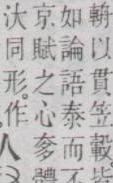 輈以貫笠轂皆
如論語泰而不
京賦之心奓體
汏同形作